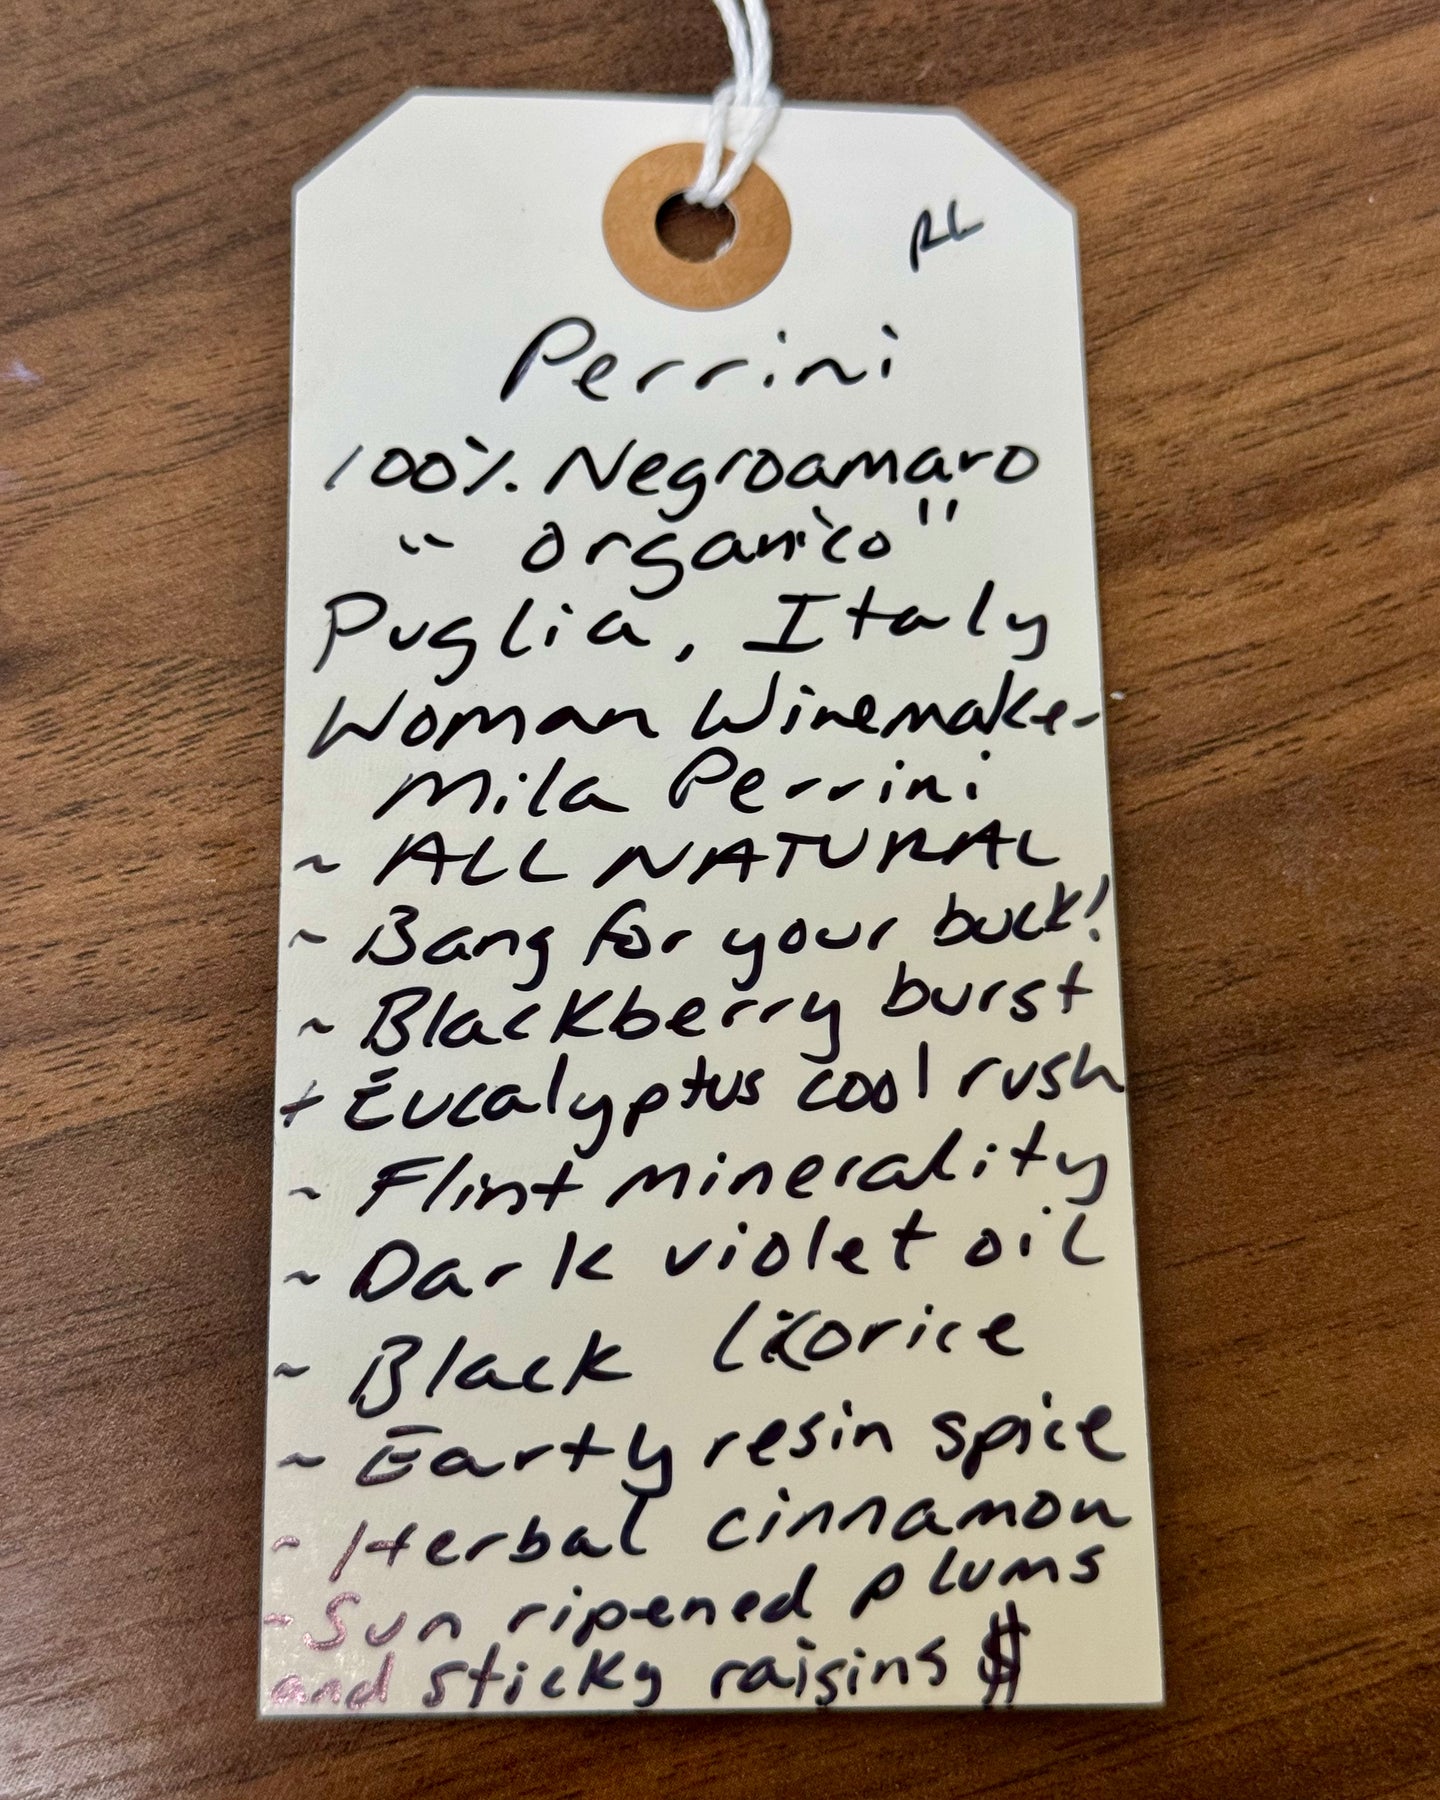 RL
Perrini
100% Negroamaro
"Organico"
Puglia, Italy
Woman Winemaker
Mila Perrini
~ ALL NATURAL
~ Bang for your buck!
~ Blackberry burst
+ Eucalyptus cool rush
~ Flint minerality
~ Dark violet oil
~ Black licorice
~ Earty resin spice
~ Herbal cinnamon
~ Sun ripened plums
and sticky raisins $